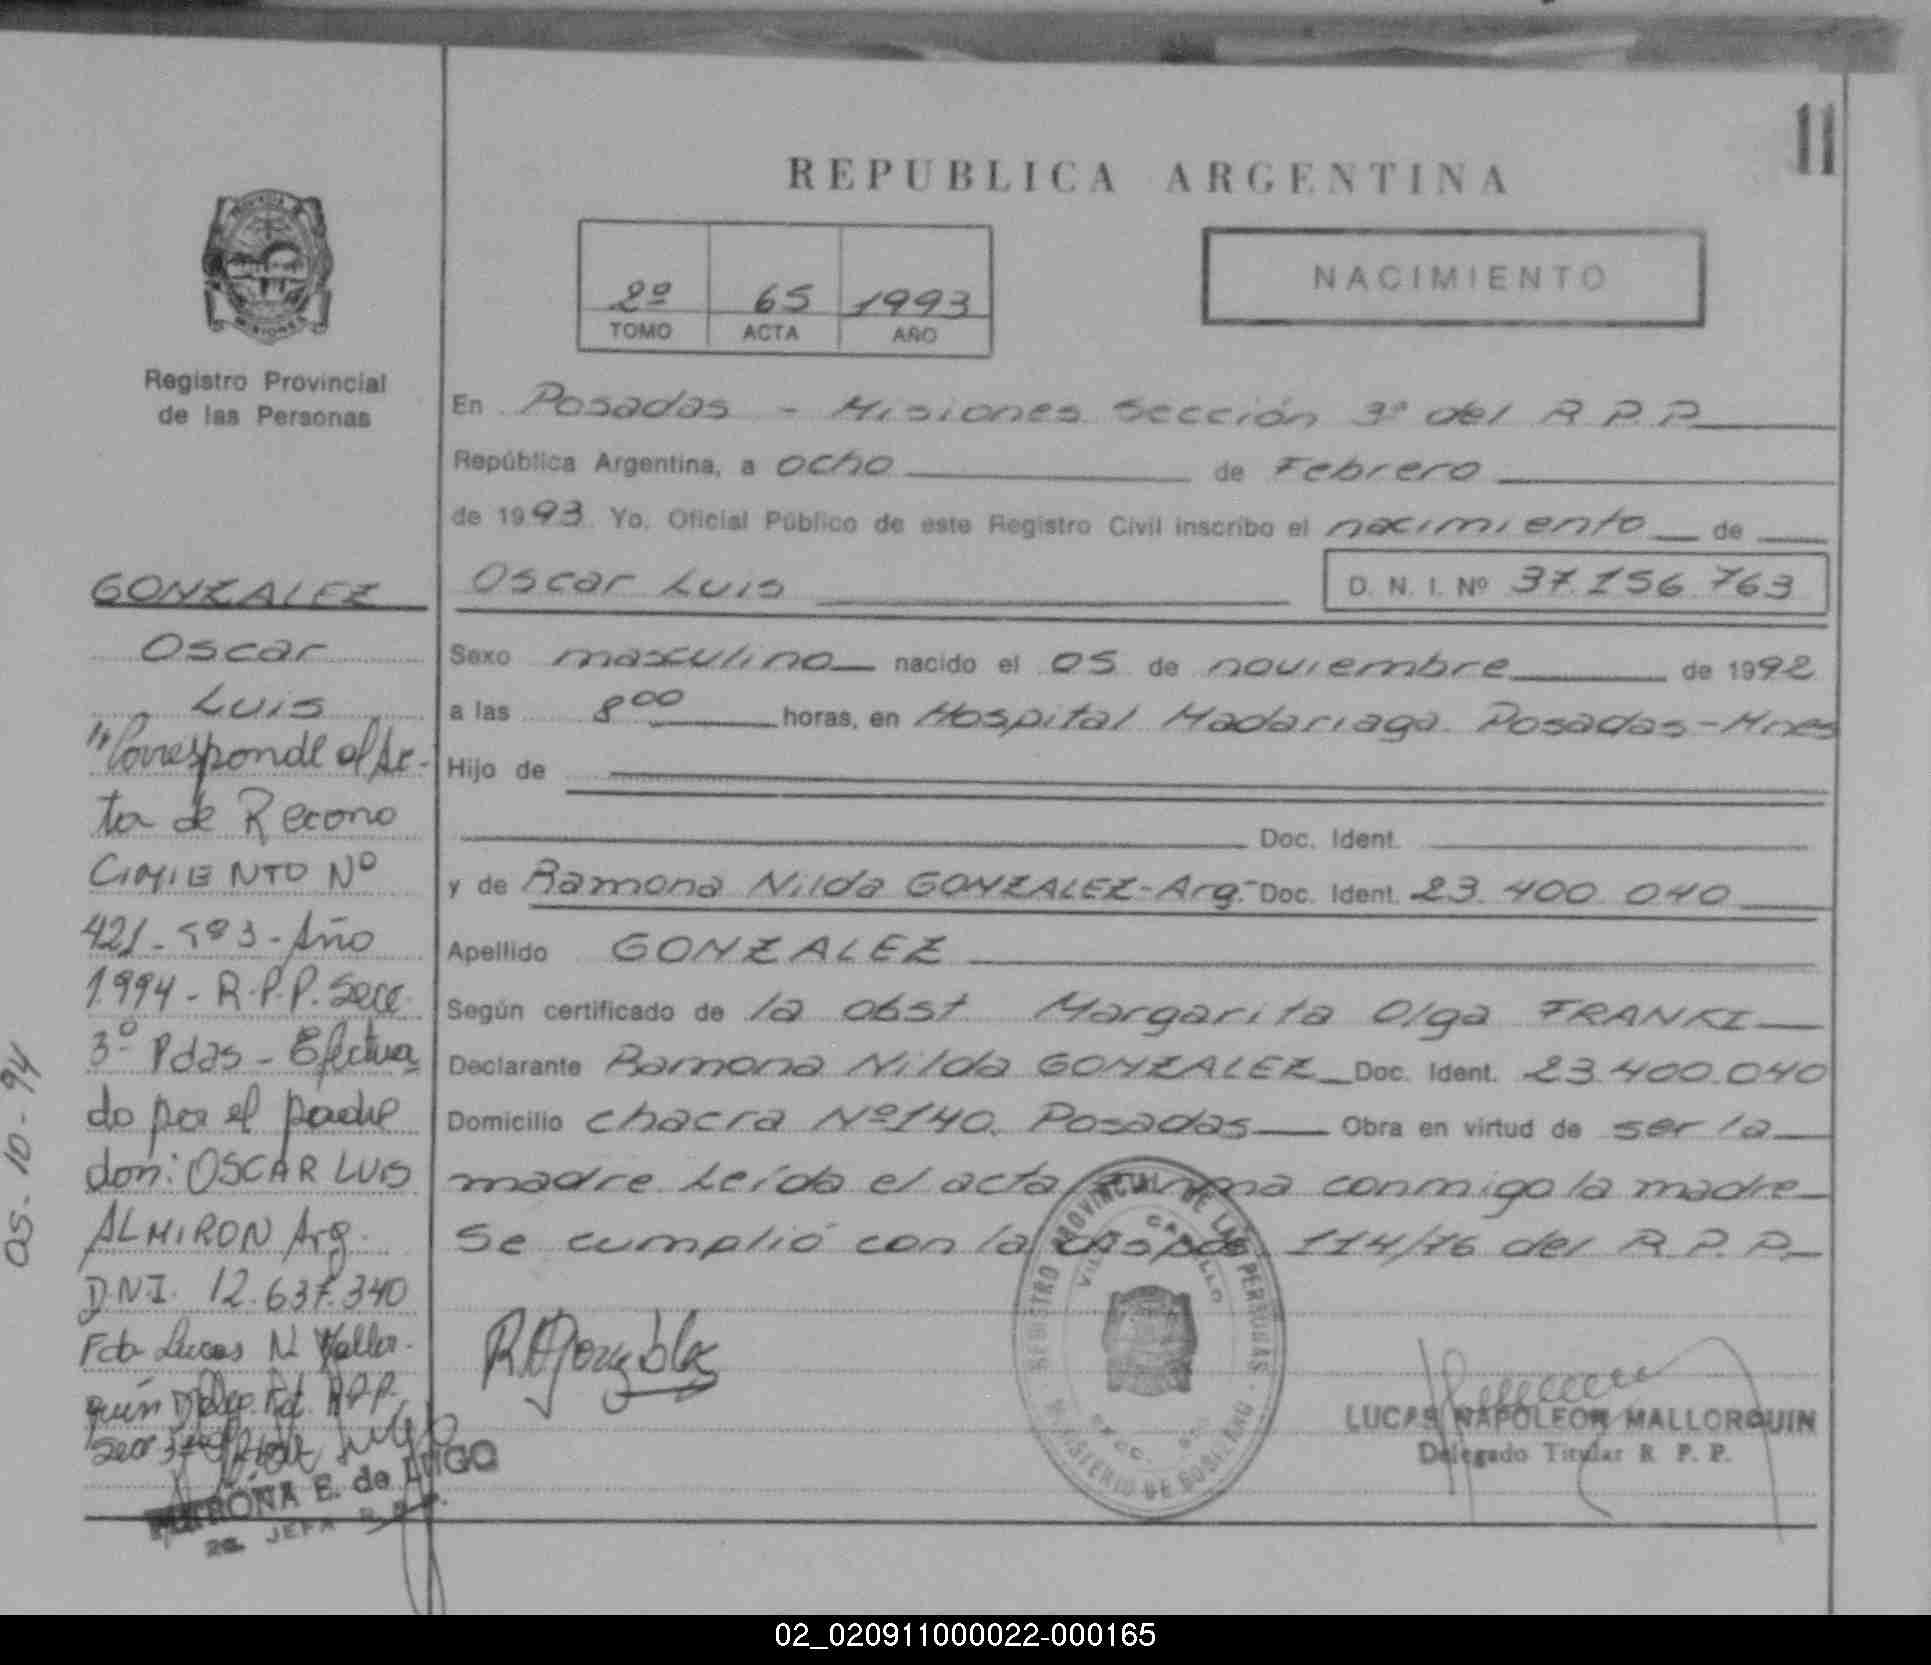 11
REPUBLICA ARGENTINA
2º 65 1993
TOMO ACTA AÑO
NACIMIENTO
MISIONES
Registro Provincial
de las Personas
En Posadas - Misiones Sección 3ª del R.P.P.
República Argentina, a ocho de Febrero
de 1993 Yo, Oficial Público de este Registro Civil inscribo el nacimiento de
Oscar Luis D. N. I. Nº 37.156.763
Sexo masculino nacido el 05 de noviembre de 1992
a las 8⁰⁰ horas, en Hospital Madariaga. Posadas-Mnes
Hijo de
Doc. Ident.
y de Ramona Nilda GONZALEZ-Arg.- Doc. Ident. 23.400.040
Apellido GONZALEZ
Según certificado de la obst. Margarita Olga FRANKI
Declarante Ramona Nilda GONZALEZ Doc. Ident. 23.400.040
Domicilio chacra Nº140. Posadas Obra en virtud de ser la
madre Leída el acta firma conmigo la madre
Se cumplió con la dispos. 114/76 del R.P.P.
GONZALEZ
Oscar
Luis
"Corresponde al Ac-
ta de Recono
CIMIENTO Nº
421 - Año
1994 - R.P.P. Secc.
3º Pdas - Efectua
do por el padre
don: OSCAR LUIS
ALMIRON Arg.
D.N.I. 12.637.340
Fdo Lucas N Mallor-
quin Deleg. Tit. R.P.P.
Secc 3ª
E. de LUGO
2a. JEFA R.P.P.
05-10-94
REGISTRO PROVINCIAL DE LAS PERSONAS
VILLA CABELLO
SECC.
MINISTERIO DE GOBIERNO
LUCAS NAPOLEON MALLORQUIN
Delegado Titular R. P. P.
02_020911000022-000165